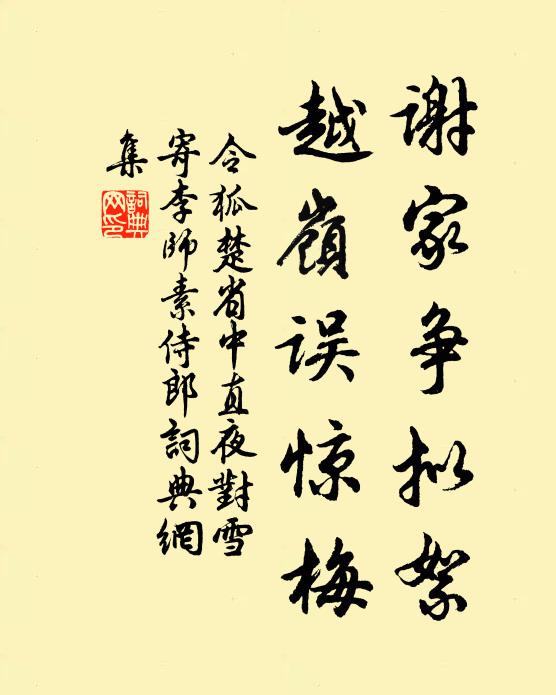 谢家争拟絮
越嶺误惊梅
令狐楚省中直夜對雪
寄李師素侍郎詞典網
集
詞典
网印